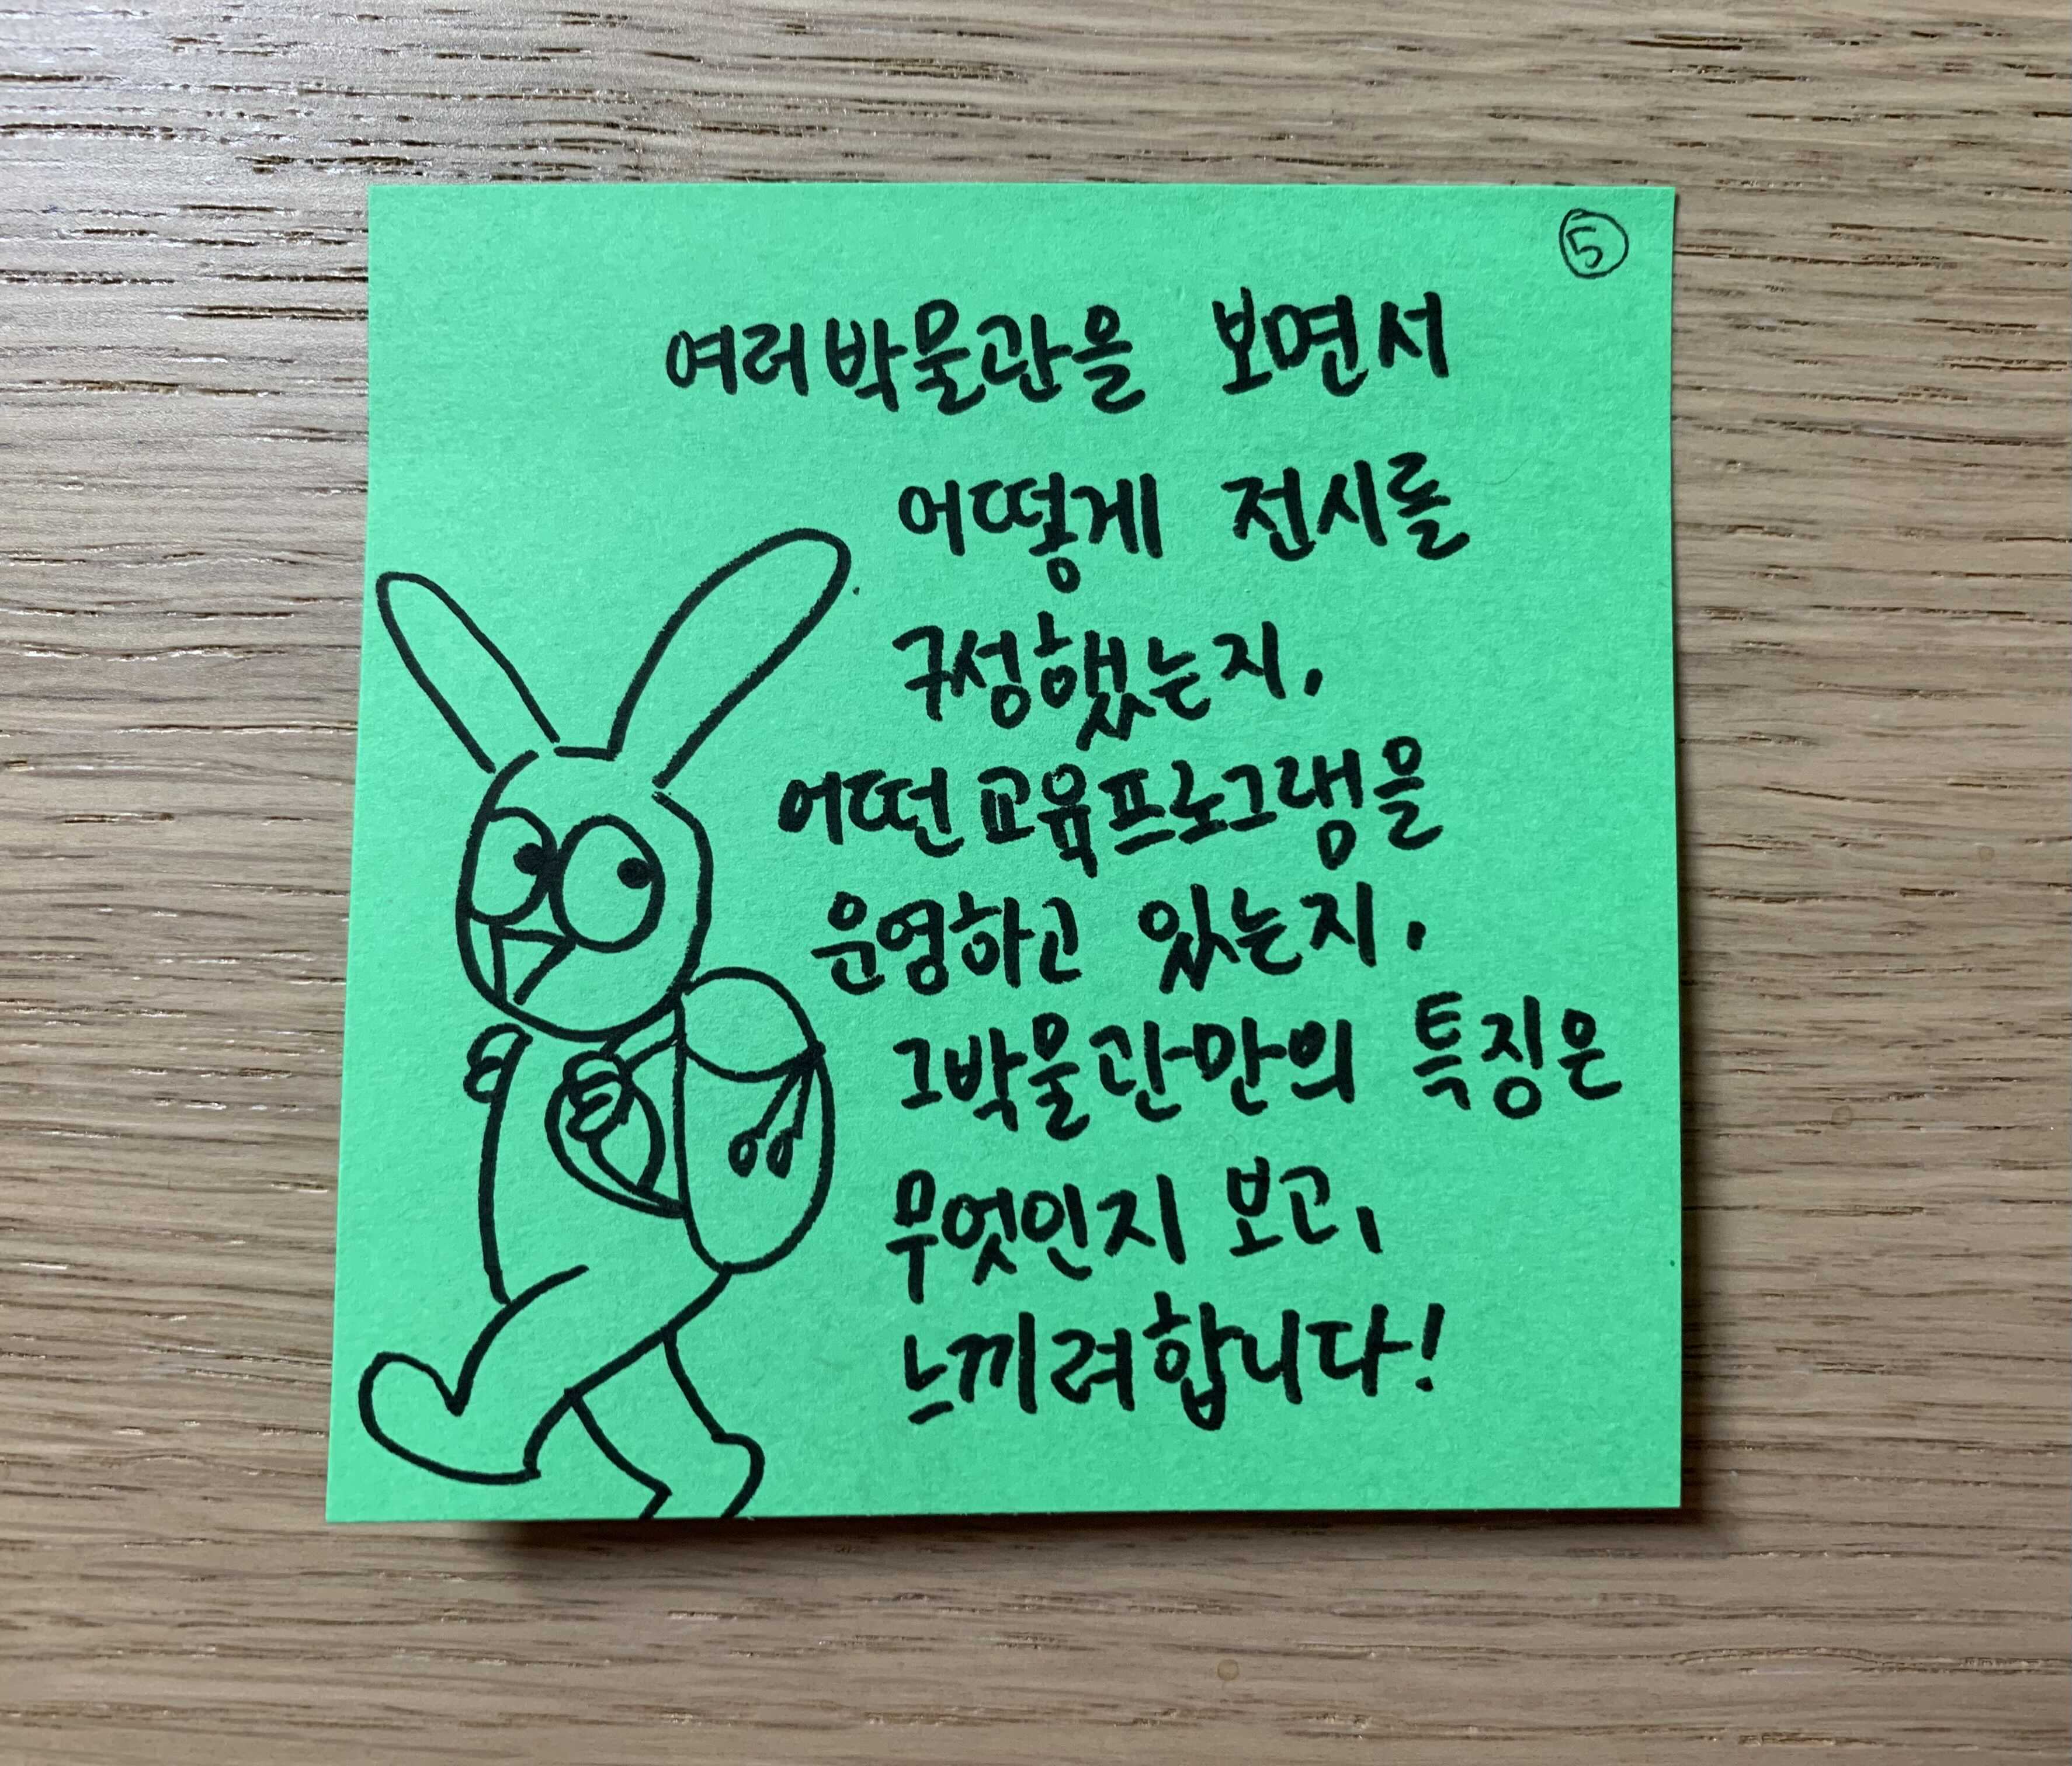 ⑤
여러 박물관을 보면서
어떻게 전시를
구성했는지,
어떤 교육프로그램을
운영하고 있는지,
그 박물관만의 특징은
무엇인지 보고,
느끼려 합니다!